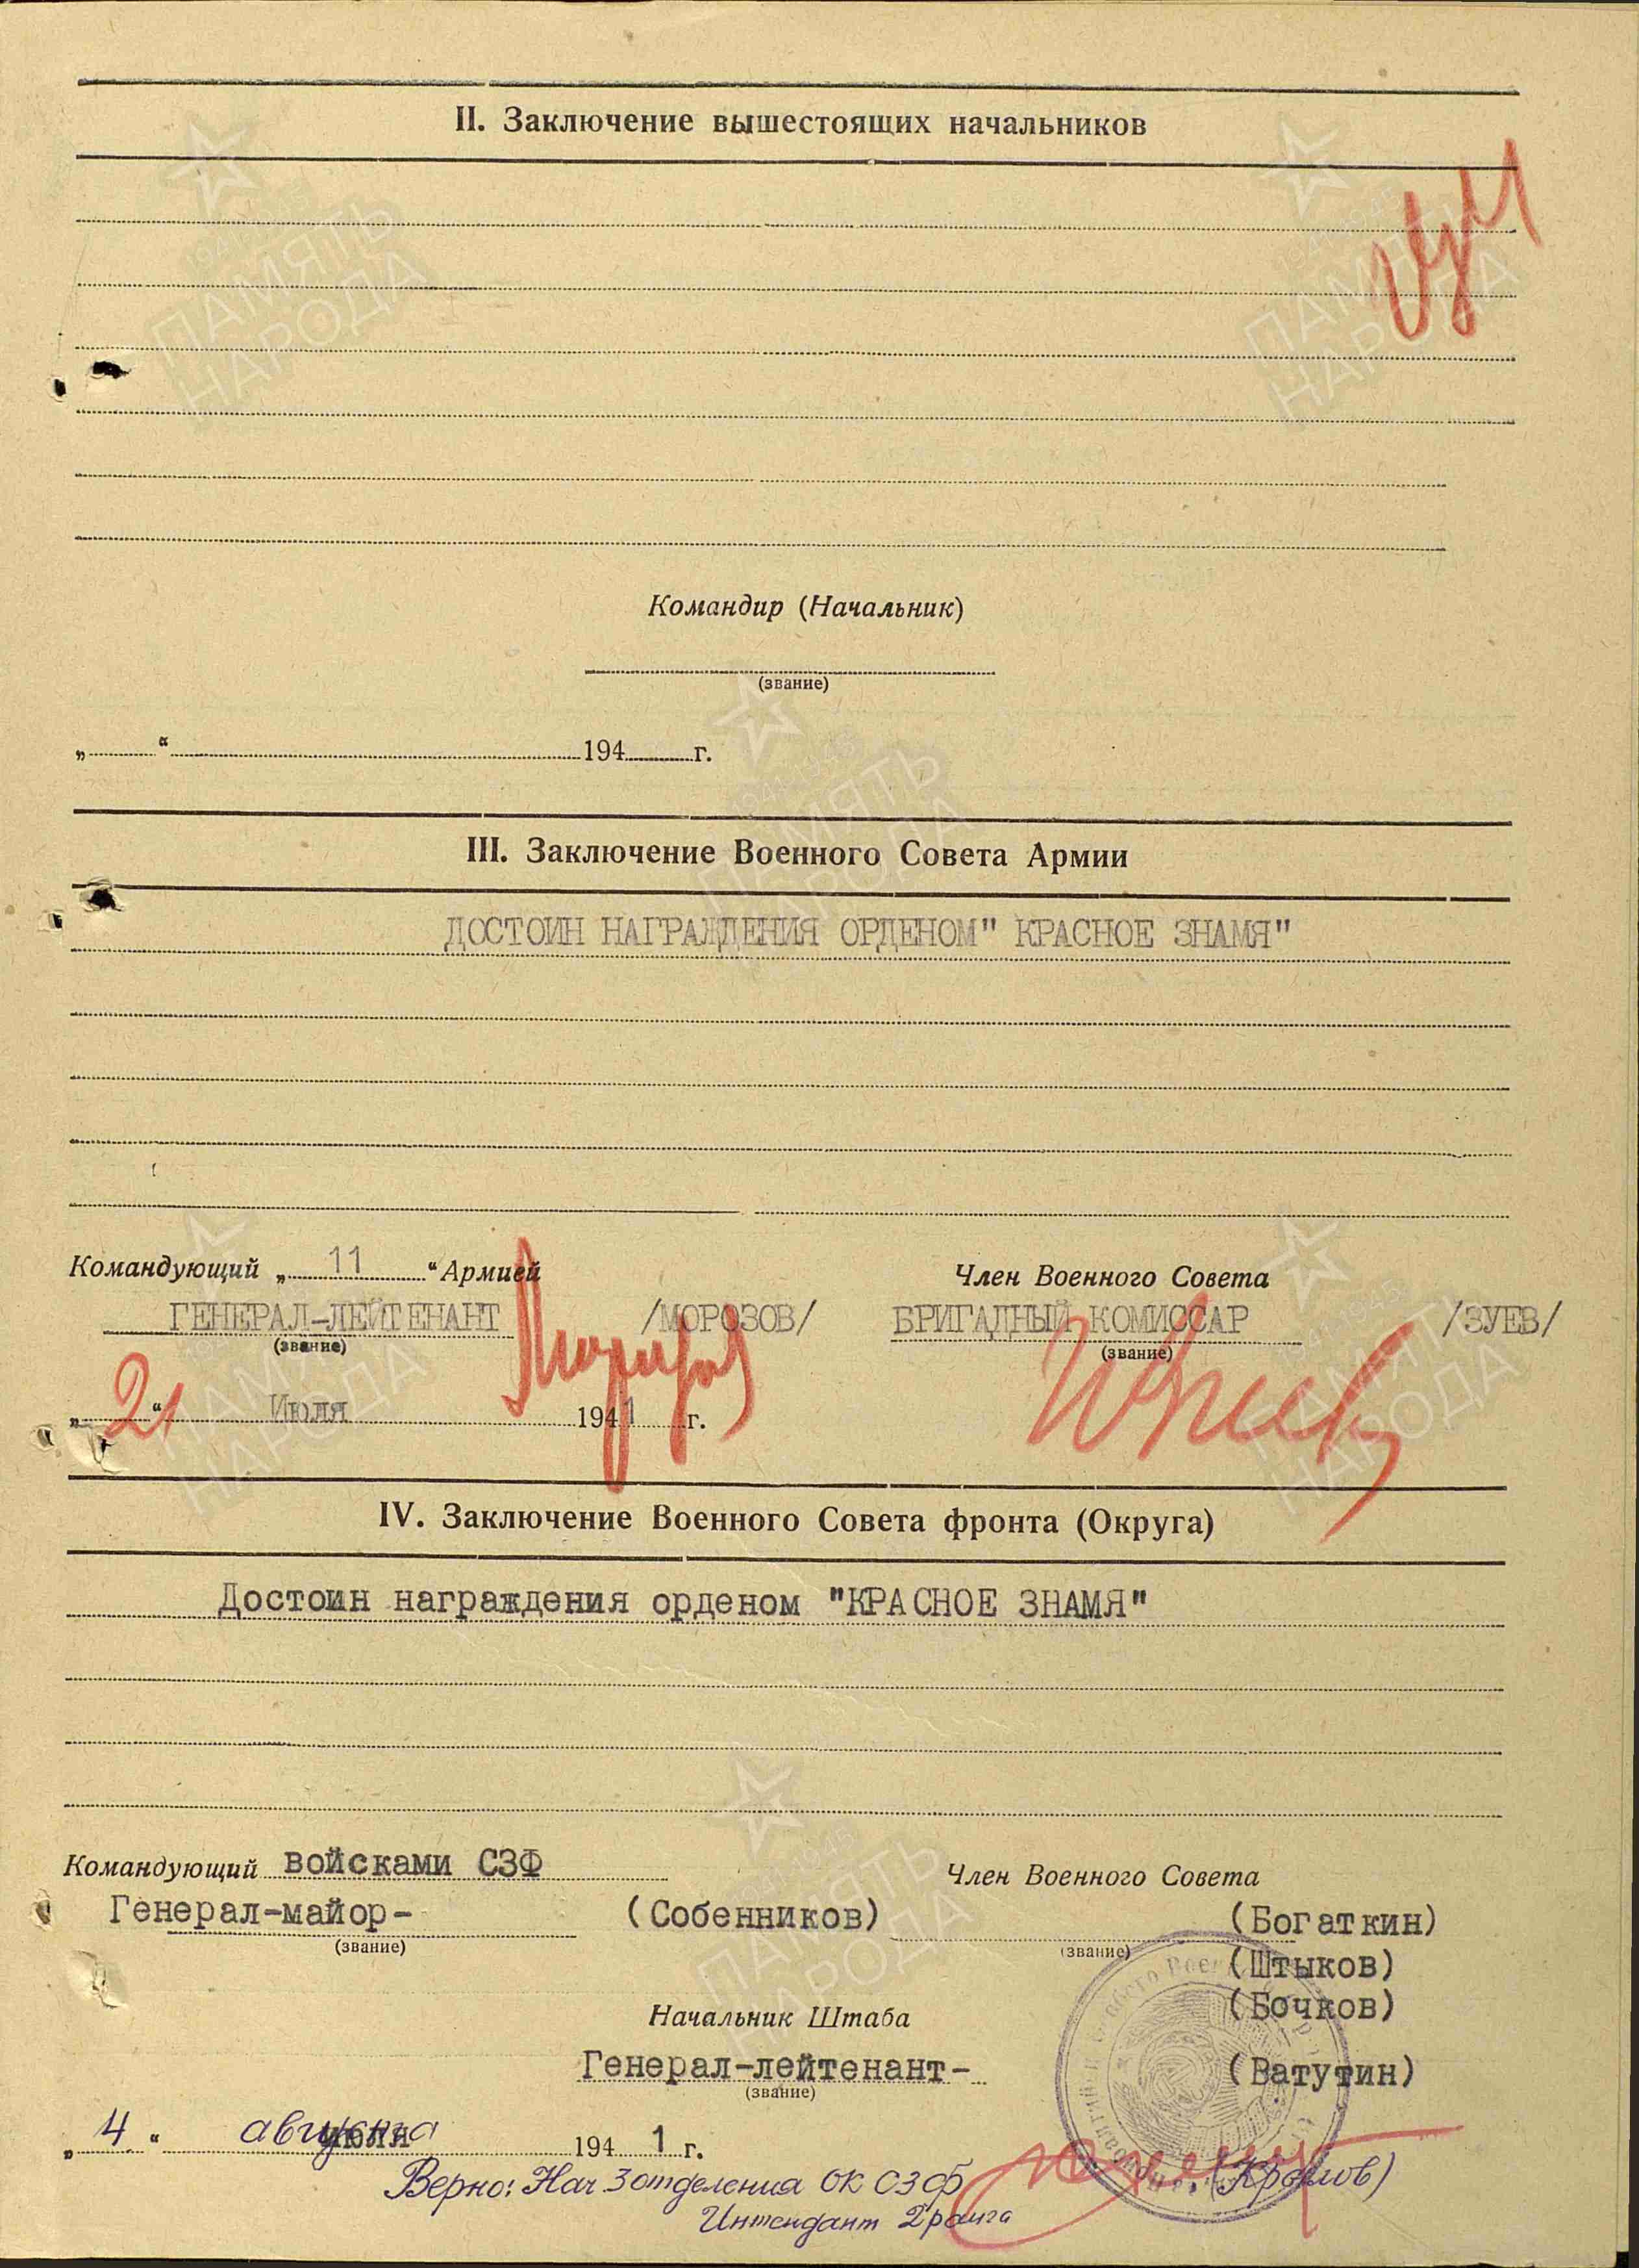 II. Заключение вышестоящих начальников
Командир (Начальник)
(звание)
„ “ 194 г.
III. Заключение Военного Совета Армии
ДОСТОИН НАГРАЖДЕНИЯ ОРДЕНОМ" КРАСНОЕ ЗНАМЯ"
Командующий „ 11 “ Армией
Член Военного Совета
ГЕНЕРАЛ-ЛЕЙТЕНАНТ /МОРОЗОВ/
БРИГАДНЫЙ КОМИССАР /ЗУЕВ/
(звание)
(звание)
„ 21 “ Июля 1941 г.
IV. Заключение Военного Совета фронта (Округа)
Достоин награждения орденом "КРАСНОЕ ЗНАМЯ"
Командующий войсками СЗФ
Член Военного Совета
Генерал-майор- (Собенников)
(Богаткин)
(звание)
(звание)
(Штыков)
(Бочков)
Начальник Штаба
Генерал-лейтенант- (Ватутин)
(звание)
„ 4 “ августа 1941 г.
Верно: Нач 3 отделения ОК СЗФ
Интендант 2 ранга (Крылов)
ПАМЯТЬ НАРОДА
1941-1945